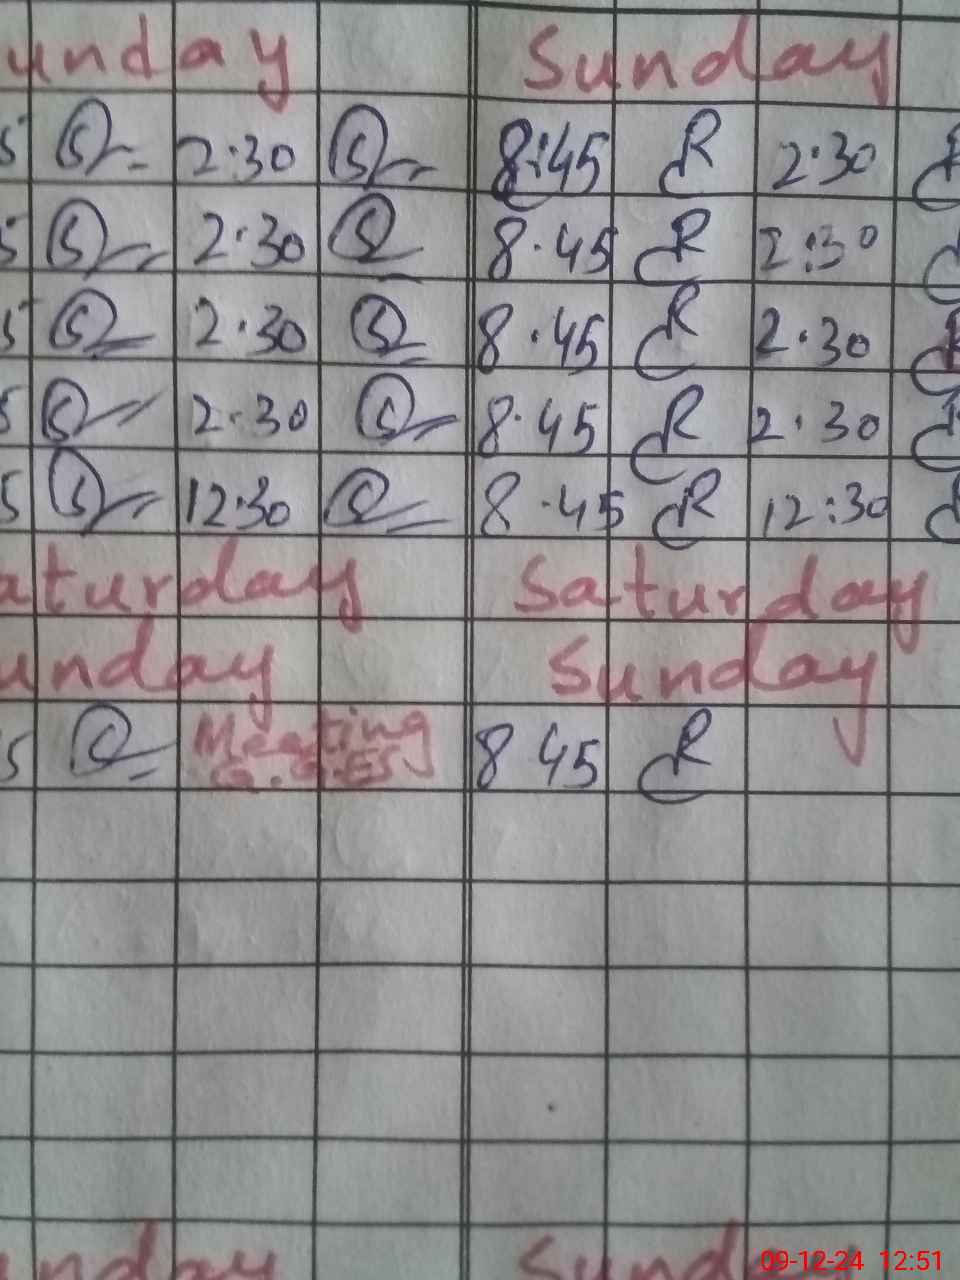 unday Sunday
5 S 2:30 S 8:45 R 2:30 R
5 S 2.30 S 8.45 R 2:30
5 S 2.30 S 8.45 R 2.30 R
5 S 2.30 S 8.45 R 2.30 R
5 S 12:30 S 8.45 R 12:30
aturday Saturday
unday Sunday
5 Meeting 8 45 R
unday Sunday
09-12-24 12:51